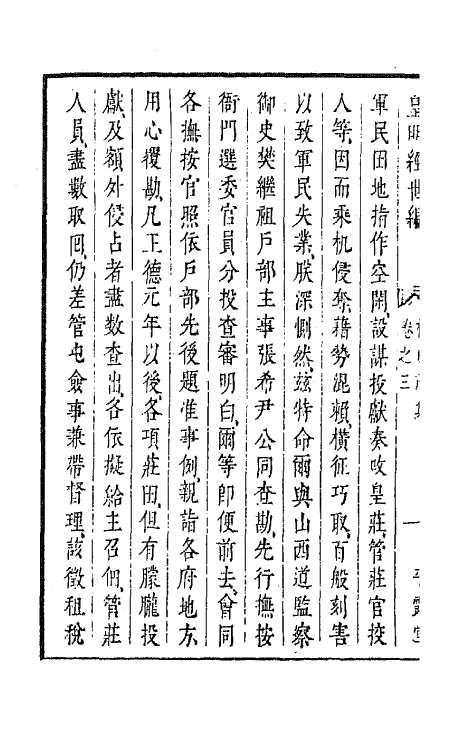 皇明經世編 卷之三 一 平露堂
軍民田地指作空閒設謀投獻奏改皇莊管莊官校
人等因而乘机侵奪藉勢混賴橫征巧取百般刻害
以致軍民失業朕深惻然玆特命爾與山西道監察
御史樊繼祖戶部主事張希尹公同查勘先行撫按
衙門選委官員分投查審明白爾等即便前去會同
各撫按官照依戶部先後題准事例親詣各府地方
用心覆勘凡正德元年以後各項莊田但有朦朧投
獻及額外侵占者盡數查出各依擬給主召佃管莊
人員盡數取囘仍差管屯僉事兼帶督理該徵租稅